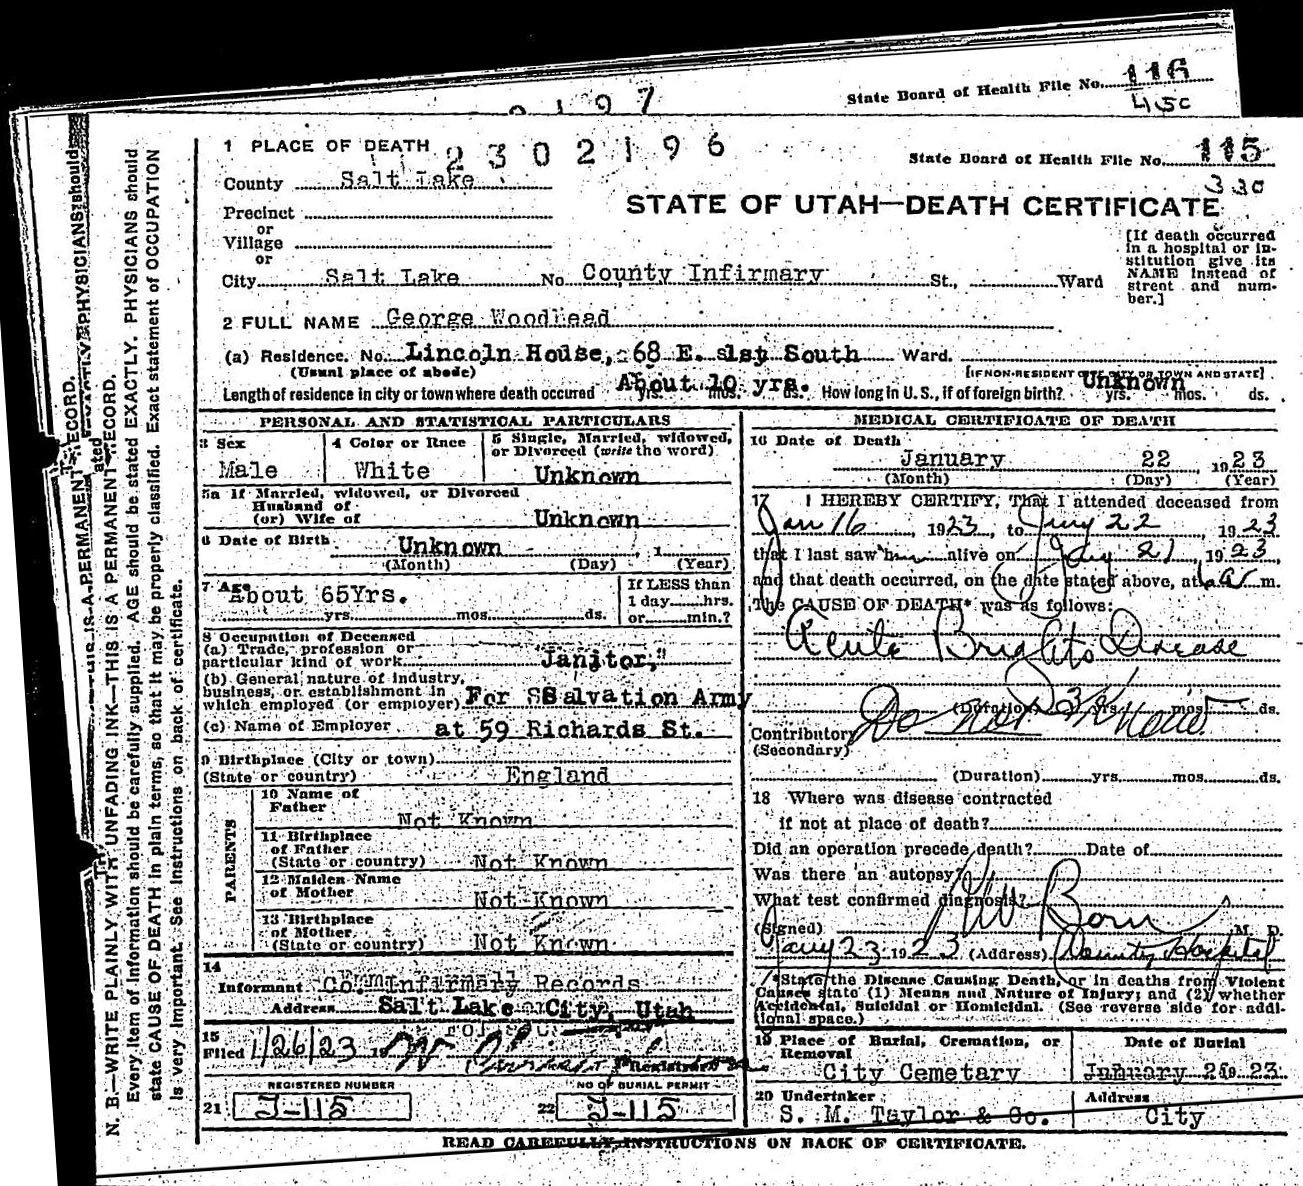 State Board of Health File No. 116
450
9197
1 PLACE OF DEATH
2302196
State Board of Health File No. 115
330
County Salt Lake
STATE OF UTAH—DEATH CERTIFICATE
Precinct
or
Village
or
City Salt Lake No. County Infirmary St., Ward
[If death occurred in a hospital or institution give its NAME instead of street and number.]
2 FULL NAME George Woodhead
(a) Residence. No. Lincoln House, 68 E. 1st South Ward.
(Usual place of abode)
[IF NON-RESIDENT GIVE CITY OR TOWN AND STATE]
Length of residence in city or town where death occured About 10 yrs. mos. ds. How long in U.S., if of foreign birth? Unknown yrs. mos. ds.
PERSONAL AND STATISTICAL PARTICULARS
3 Sex Male
4 Color or Race White
5 Single, Married, widowed, or Divorced (write the word) Unknown
5a If Married, widowed, or Divorced
Husband of
(or) Wife of Unknown
6 Date of Birth Unknown
(Month) (Day) (Year)
7 Age About 65Yrs.
yrs. mos. ds.
If LESS than
1 day hrs.
or min.?
8 Occupation of Deceased
(a) Trade, profession or
particular kind of work Janitor,
(b) General nature of industry,
business, or establishment in
which employed (or employer) For SSalvation Army
(c) Name of Employer at 59 Richards St.
9 Birthplace (City or town)
(State or country) England
PARENTS
10 Name of
Father Not Known
11 Birthplace
of Father
(State or country) Not Known
12 Maiden Name
of Mother Not Known
13 Birthplace
of Mother
(State or country) Not Known
14
Informant Co. Infirmary Records
Address Salt Lake City, Utah
15
Filed 1/26/23 19 Registrar
REGISTERED NUMBER
21 J-115
NO OF BURIAL PERMIT
22 J-115
MEDICAL CERTIFICATE OF DEATH
16 Date of Death
January 22, 1923
(Month) (Day) (Year)
17 I HEREBY CERTIFY, That I attended deceased from
Jan 16, 1923, to Jany 22, 1923
that I last saw him alive on Jany 21, 1923,
and that death occurred, on the date stated above, at 1 a m.
The CAUSE OF DEATH* was as follows:
Acute Brights Disease
(Duration) yrs. mos. ds.
Contributory Do not Know
(Secondary)
(Duration) yrs. mos. ds.
18 Where was disease contracted
if not at place of death?
Did an operation precede death? Date of
Was there an autopsy?
What test confirmed diagnosis?
(Signed) Born M. D.
Jany 23 1923 (Address) County Hospital
*State the Disease Causing Death, or in deaths from Violent
Causes state (1) Means and Nature of Injury; and (2) whether
Accidental, Suicidal or Homicidal. (See reverse side for addi-
tional space.)
19 Place of Burial, Cremation, or
Removal
City Cemetary
Date of Burial
January 2 1923
20 Undertaker
S. M. Taylor & Co.
Address
City
READ CAREFULLY INSTRUCTIONS ON BACK OF CERTIFICATE.
N. B.—WRITE PLAINLY WITH UNFADING INK—THIS IS A PERMANENT RECORD.
Every item of information should be carefully supplied. AGE should be stated EXACTLY. PHYSICIANS should
state CAUSE OF DEATH in plain terms, so that it may be properly classified. Exact statement of OCCUPATION
is very important. See instructions on back of certificate.